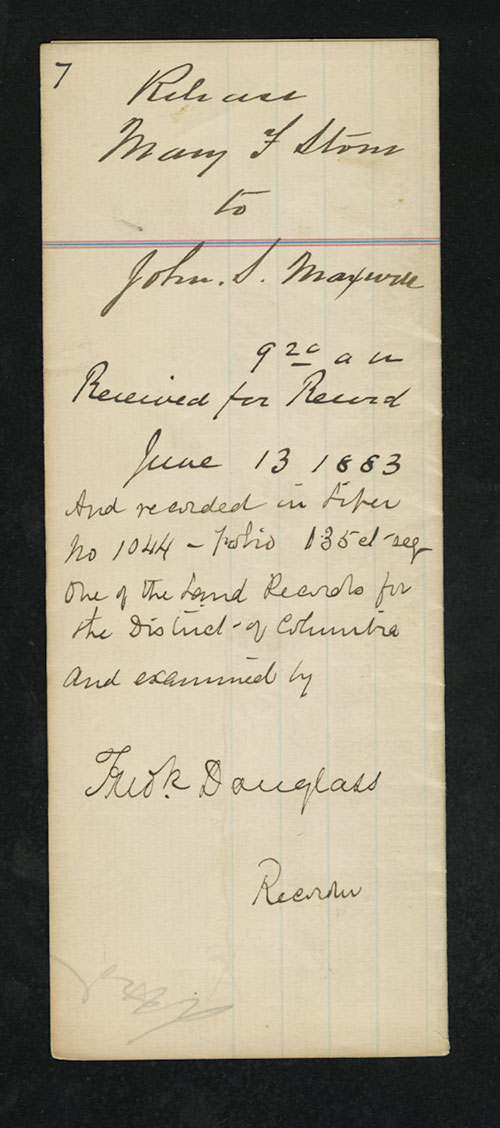 7
Release
Mary F Storm
to
John. S. Maxwell
9 20 a m
Received for Record
June 13 1883
And recorded in Liber
No 1044 - Folio 135 et seq
One of the Land Records for
the District of Columbia
and examined by
Fredk Douglass
Recorder